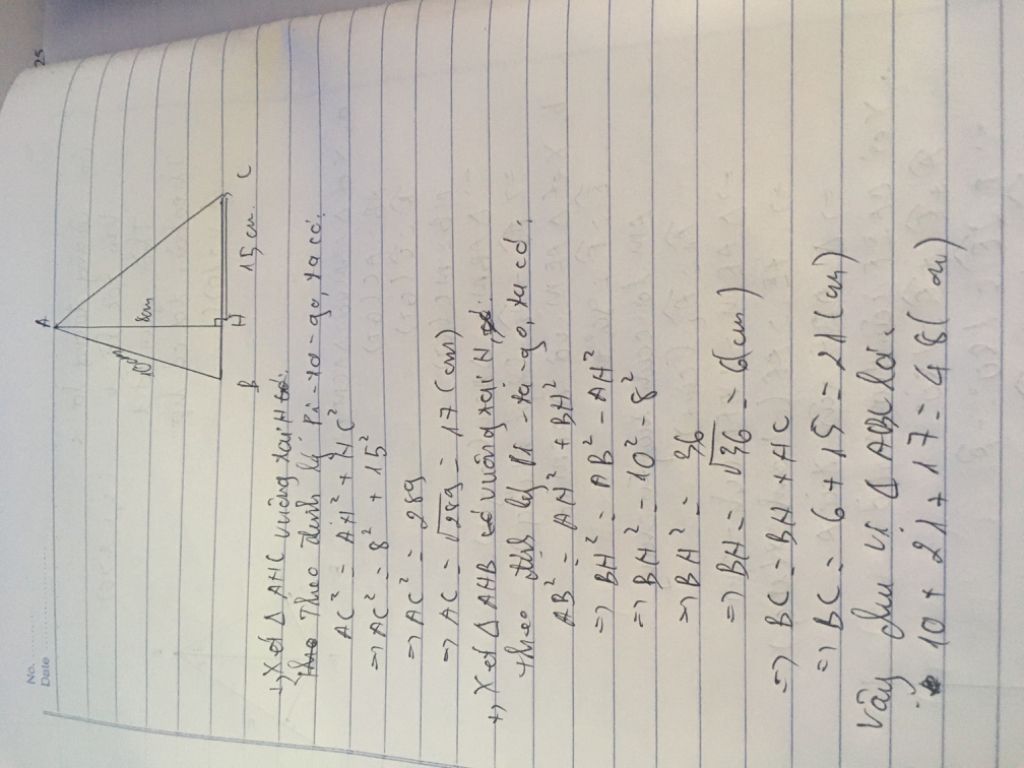 No.
Date
25
A
10cm
8cm
B
H
15cm
C
+) Xét Δ AHC vuông tại H
Theo định lý Pi-ta-go, ta có:
AC² = AH² + HC²
=> AC² = 8² + 15²
=> AC² = 289
=> AC = √289 = 17 (cm)
+) Xét Δ AHB vuông tại H,
theo định lý Pi-ta-go, ta có:
AB² = AH² + BH²
=> BH² = AB² - AH²
=> BH² = 10² - 8²
=> BH² = 36
=> BH = √36 = 6cm)
=> BC = BH + HC
=> BC = 6 + 15 = 21 (cm)
Vậy chu vi Δ ABC là:
10 + 21 + 17 = 48 (cm)